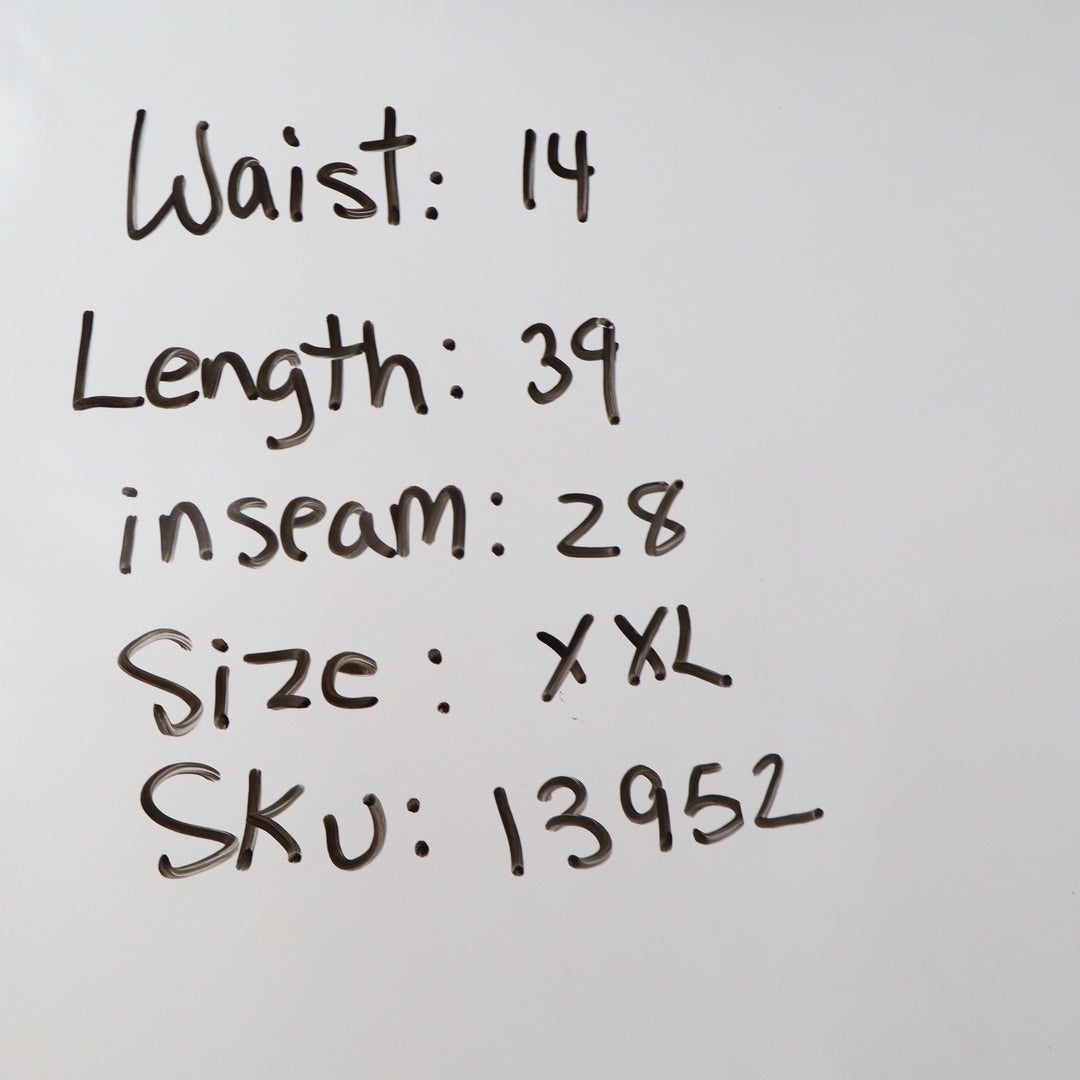 Waist: 14
Length: 39
inseam: 28
Size: XXL
Sku: 13952